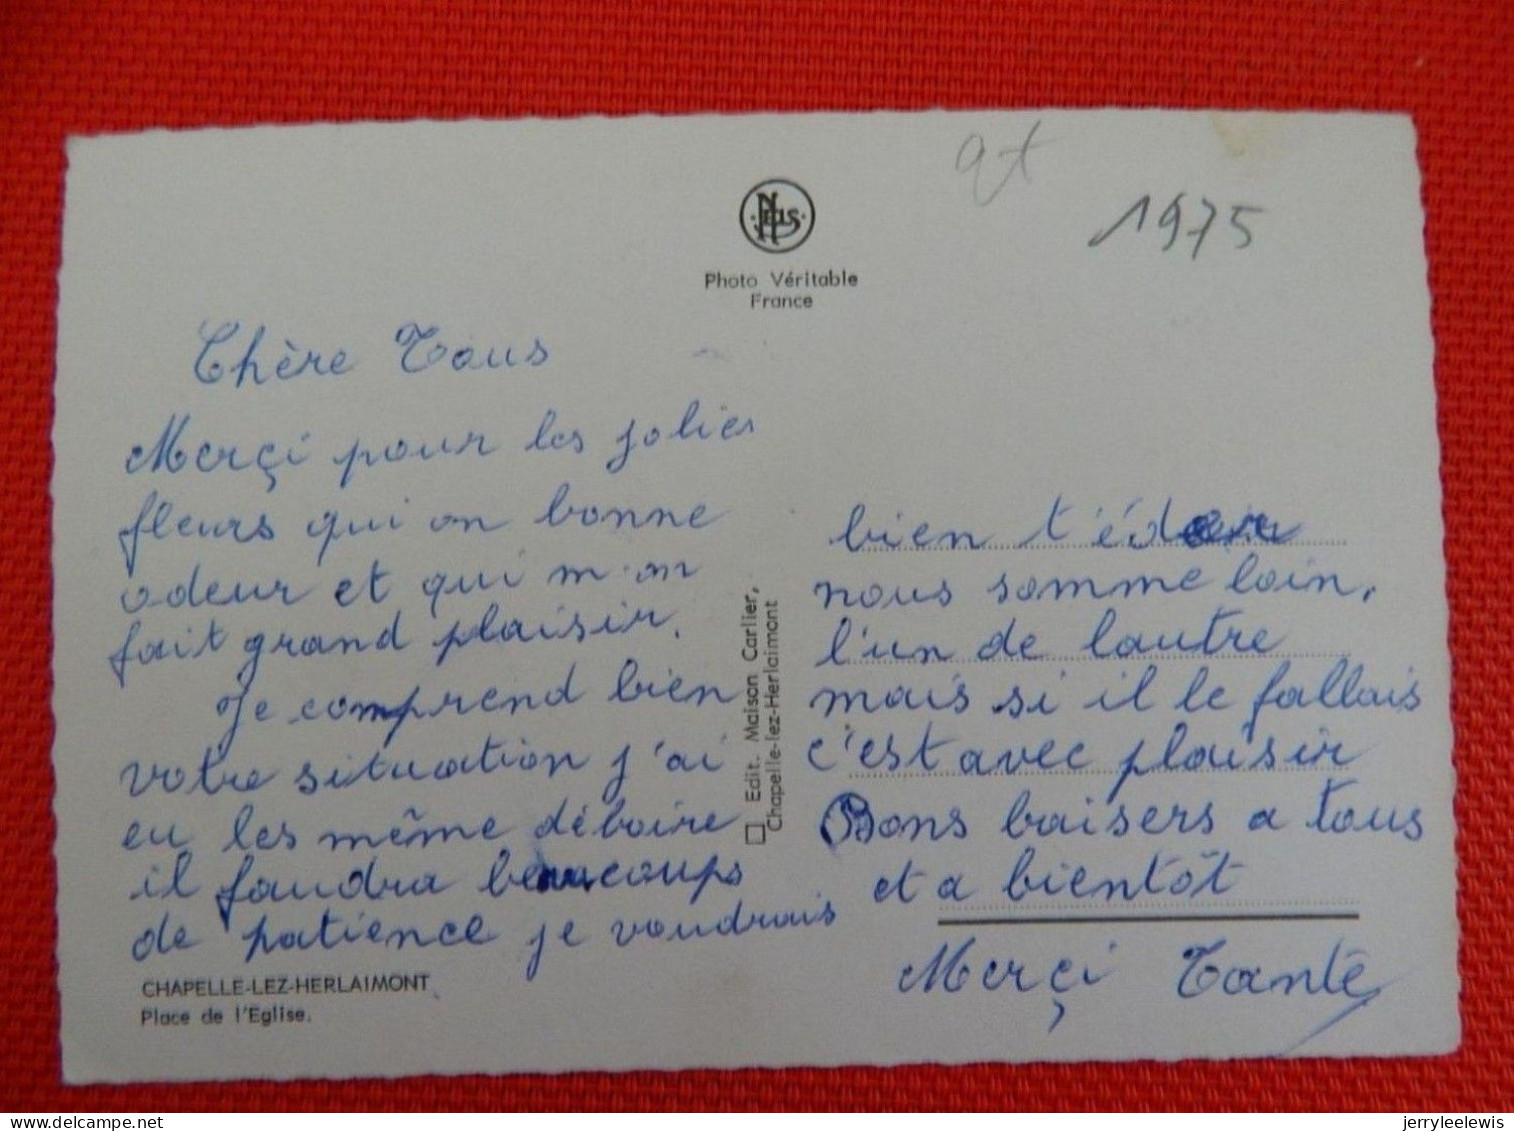 qt
1975
Nels
Photo Véritable
France
Chère Tous
Merçi pour les jolies
fleurs qui on bonne
odeur et qui m'on
fait grand plaisir.
Je comprend bien
votre situation j'ai
eu les même déboire
il faudra beaucoups
de patience je voudrais
CHAPELLE-LEZ-HERLAIMONT
Place de l'Eglise.
Edit. Maison Carlier,
Chapelle-lez-Herlaimont
bien t'éder
nous somme loin,
l'un de lautre
mais si il le fallais
c'est avec plaisir
Bons baisers a tous
et a bientôt
Merçi Tante
jerryleelewis
delcampe.net